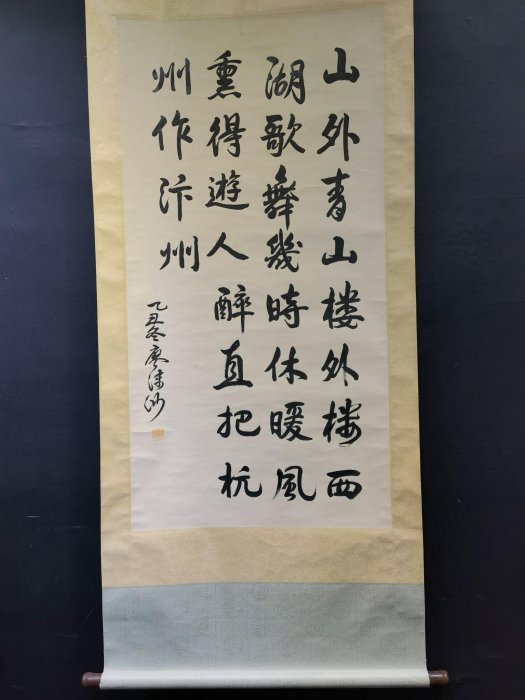 山外青山楼外楼西
湖歌舞幾時休暖風
熏得遊人醉直把杭
州作汴州
乙丑冬廖沫沙